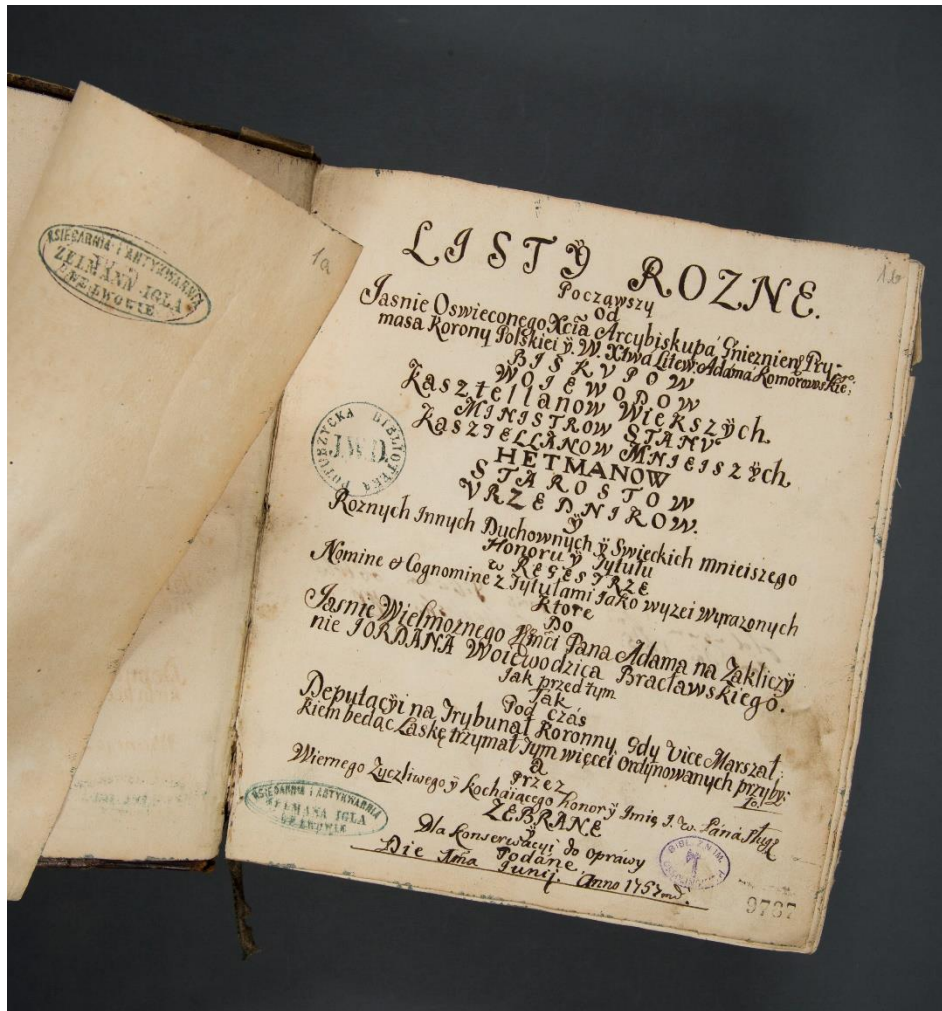 KSIĘGARNIA I ANTYKWARNIA
ZELMANN IGLA
WE LWOWIE
1a
1b
LISTÿ ROZNE.
Począwszy
Od
Jasnie Oswieconego Xcia Arcybiskupa Gniezniens Pry:
masa Korony Polskiei ÿ. W. Xtwa Litew: Adama Komorowskie:
go.
BISKVPOW
WOIEWODOW
Kasztellanow Większÿch.
MINISTROW STANV
KASZTELLANOW MNIEISZÿch.
HETMANOW
STAROSTOW
VRZEDNIKOW.
ÿ
Roznych Innych Duchownych ÿ Swieckich mnieiszego
Honoru ÿ Tytułu
w REGESTRZE
Nomine et Cognomine z Tytulami Jako wyzei Wyrazonych
Ktore
Do
Jasnie Wielmoznego Jmci Pana Adama na Zakliczÿ
nie JORDANA Woiewodzica Bracławskiego.
Jak przed tym
Tak
Pod czás
Deputacÿi na Trybunał Koronny, Gdy Vice Marszał:
kiem będąc Laskę trzymał Tym więcei Ordynowanych przyby:
ło.
a
Przez
Wiernego Zyczliwego ÿ Kochaiącego honor ÿ Imie J. W. Pána sługę
ZEBRANE
ÿ
Dla Konserwacyi do Oprawy
Podane
Die 1ma Junij. Anno 1757mo.
POTURZYCKA BIBLIOTEKA
J.W.D.
KSIĘGARNIA I ANTYKWARNIA
ZELMANA IGLA
WE LWOWIE
BIBL. Z.N. IM.
9787